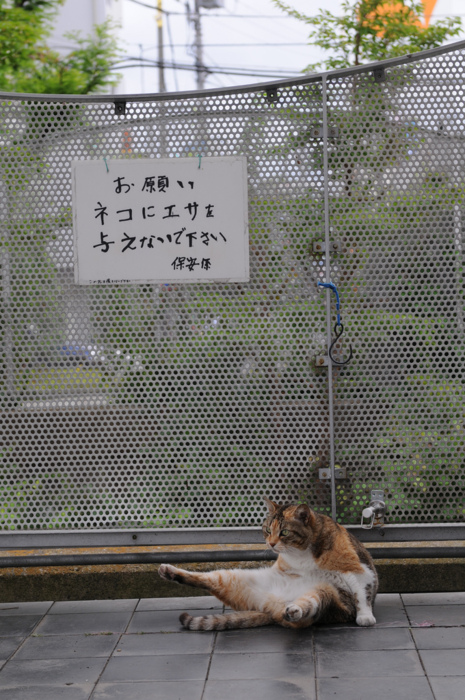 お願い
ネコにエサを
与えないで下さい
保安係